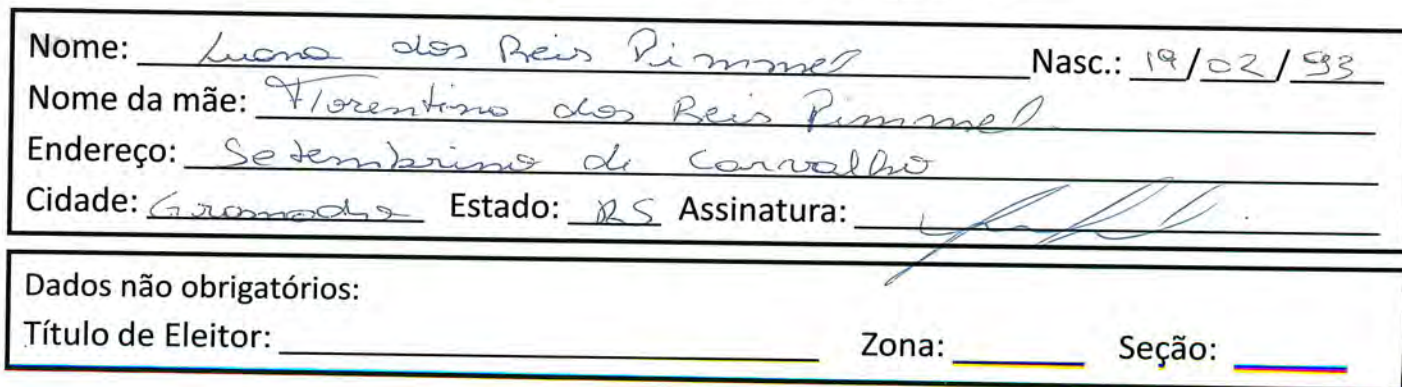 Nome: Luana dos Reis Pimmel Nasc.: 19/02/93
Nome da mãe: Florentina dos Reis Pimmel
Endereço: Setembrino de Carvalho
Cidade: Gramado Estado: RS Assinatura:
Dados não obrigatórios:
Título de Eleitor: Zona: Seção: